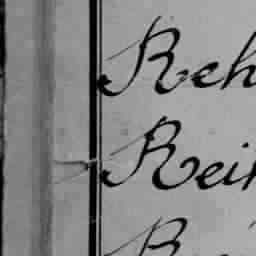 Reh
Rei